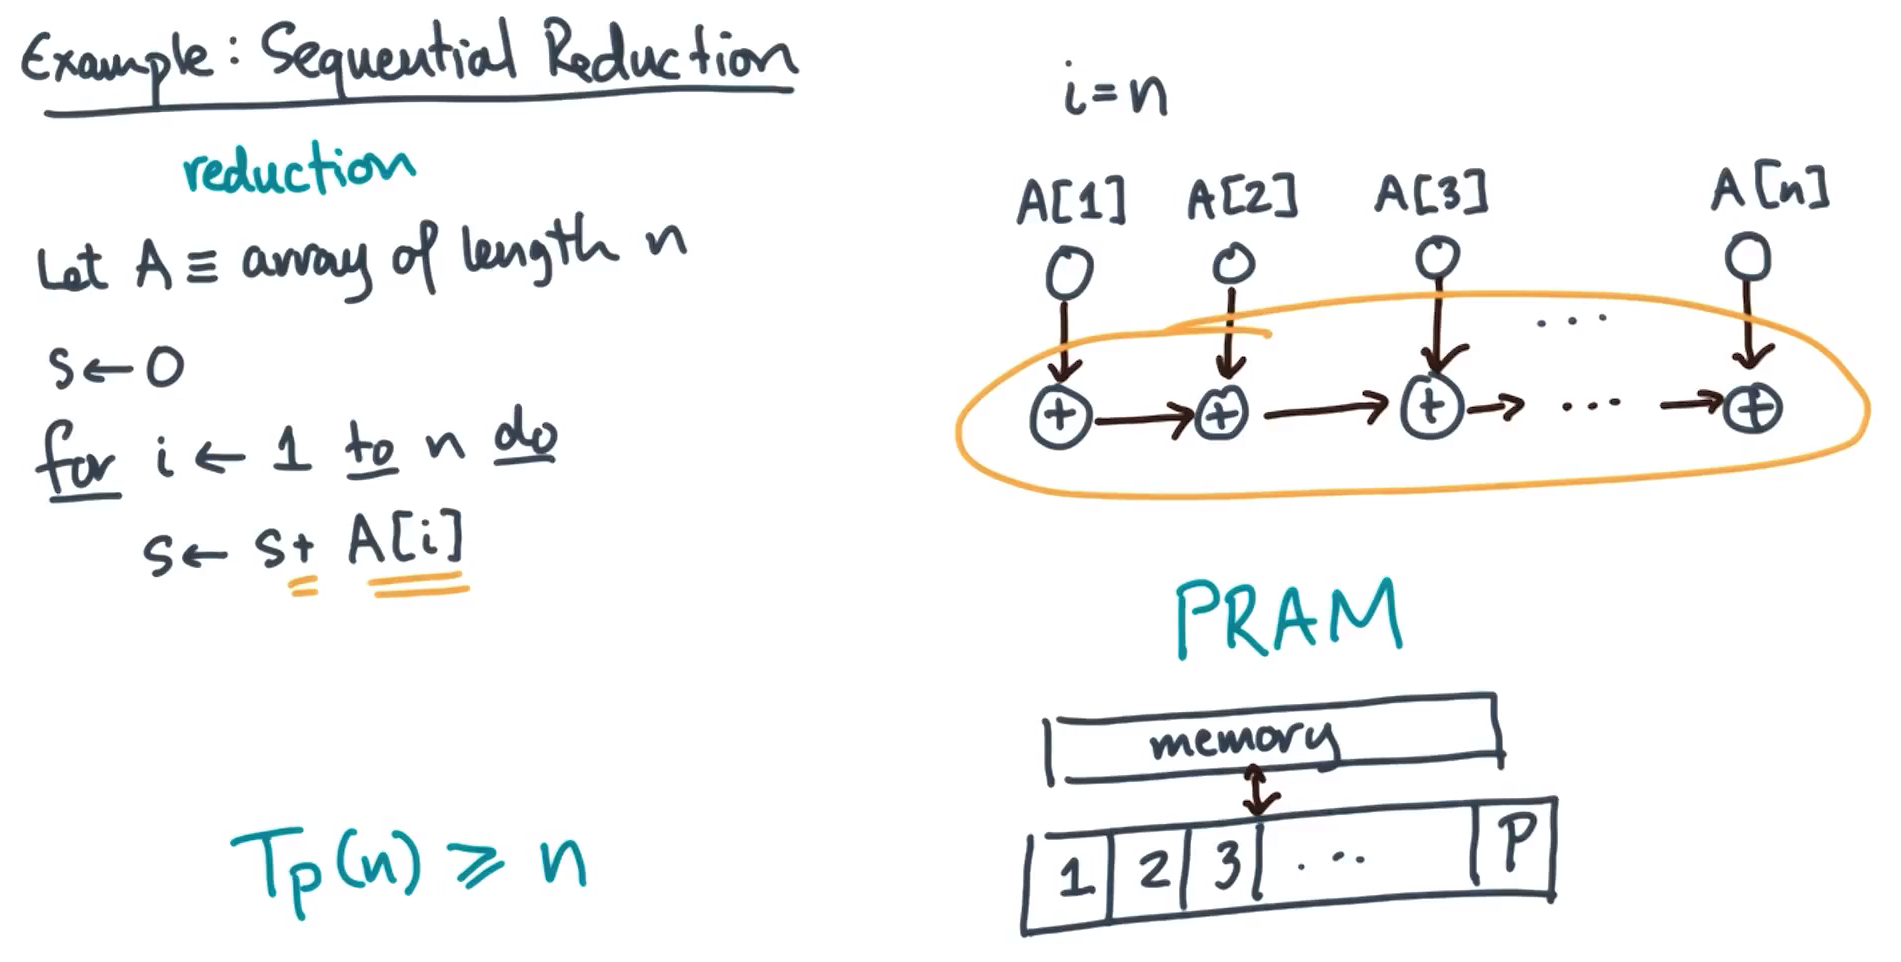 Example: Sequential Reduction
reduction
Let A ≡ array of length n
s ← 0
for i ← 1 to n do
s ← s + A[i]
T_p(n) ≥ n
i = n
A[1] A[2] A[3] A[n]
...
+ → + → + → ... → +
PRAM
memory
1 2 3 ... P